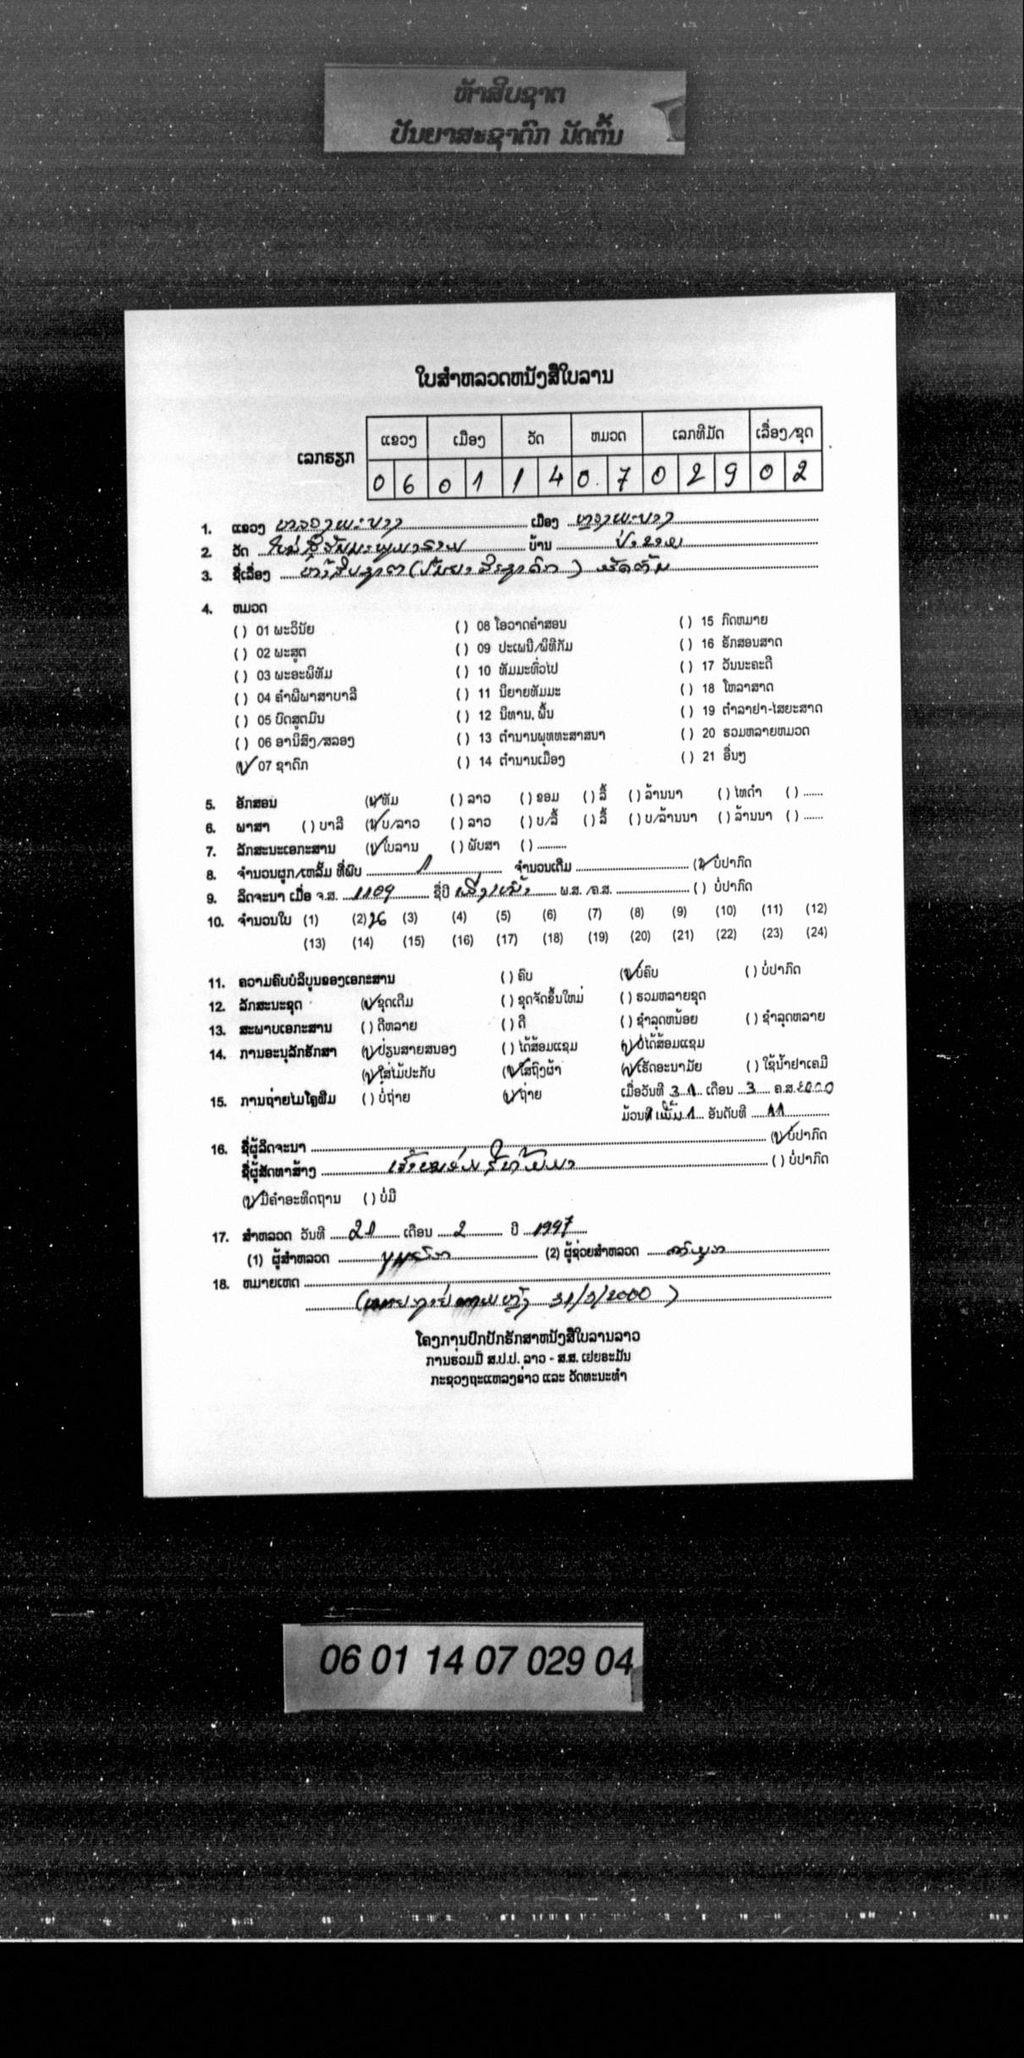 ຫ້າສິບຊາຕ
ປັນຍາສະຊາດົກ ມັດຕົ້ນ
ໃບສຳຫລວດຫນັງສືໃບລານ
ເລກຮຽກ
ແຂວງ ເມືອງ ວັດ ຫມວດ ເລກທີມັດ ເລື່ອງ/ຊຸດ
0 6 0 1 1 4 0. 7 0 2 9 0 2
1. ແຂວງ ຫລວງພະບາງ ເມືອງ ຫຼວງພະບາງ
2. ວັດ ໃໝ່ ບ້ານ ປ່າຂາມ
3. ຊື່ເລື່ອງ ຫ້າສິບຊາຕ (ປັນຍາສະຊາດົກ) ມັດຕົ້ນ
4. ຫມວດ
( ) 01 ພະວິນັຍ ( ) 08 ໂອວາດຄຳສອນ ( ) 15 ກົດຫມາຍ
( ) 02 ພະສູດ ( ) 09 ປະເພນີ/ພິທີກັມ ( ) 16 ອັກສອນສາດ
( ) 03 ພະອະພິທັມ ( ) 10 ທັມມະທົ່ວໄປ ( ) 17 ວັນນະຄະດີ
( ) 04 ຄຳພີພາສາບາລີ ( ) 11 ນິຍາຍທັມມະ ( ) 18 ໂຫລາສາດ
( ) 05 ບົດສູດມົນ ( ) 12 ນິທານ, ພື້ນ ( ) 19 ຕຳລາຢາ-ໄສຍະສາດ
( ) 06 ອານິສົງ/ສລອງ ( ) 13 ຕຳນານພຸທທະສາສນາ ( ) 20 ຮວມຫລາຍຫມວດ
(✓) 07 ຊາດົກ ( ) 14 ຕຳນານເມືອງ ( ) 21 ອື່ນໆ
5. ອັກສອນ (✓) ທັມ ( ) ລາວ ( ) ຂອມ ( ) ລື້ ( ) ລ້ານນາ ( ) ໄທດຳ ( ) ......
6. ພາສາ ( ) ບາລີ (✓) ບ/ລາວ ( ) ລາວ ( ) ບ/ລື້ ( ) ລື້ ( ) ບ/ລ້ານນາ ( ) ລ້ານນາ ( ) ......
7. ລັກສະນະເອກະສານ (✓) ໃບລານ ( ) ພັບສາ ( ) .........
8. ຈຳນວນຜູກ/ເຫລັ້ມ ທີ່ພົບ 1 ຈຳນວນເດີມ (✓) ບໍ່ປາກົດ
9. ລິດຈະນາ ເມື່ອ ຈ.ສ. 1109 ຊື່ປີ ເມືງເໝົ້າ ພ.ສ. /ຄ.ສ. ( ) ບໍ່ປາກົດ
10. ຈຳນວນໃບ (1) (2) 26 (3) (4) (5) (6) (7) (8) (9) (10) (11) (12)
(13) (14) (15) (16) (17) (18) (19) (20) (21) (22) (23) (24)
11. ຄວາມຄົບບໍລິບູນຂອງເອກະສານ ( ) ຄົບ (✓) ບໍ່ຄົບ ( ) ບໍ່ປາກົດ
12. ລັກສະນະຊຸດ (✓) ຊຸດເດີມ ( ) ຊຸດຈັດຂຶ້ນໃຫມ່ ( ) ຮວມຫລາຍຊຸດ
13. ສະພາບເອກະສານ ( ) ດີຫລາຍ ( ) ດີ ( ) ຊຳລຸດຫນ້ອຍ ( ) ຊຳລຸດຫລາຍ
14. ການອະນຸລັກຮັກສາ (✓) ປ່ຽນສາຍສນອງ ( ) ໄດ້ສ້ອມແຊມ (✓) ບໍ່ໄດ້ສ້ອມແຊມ
(✓) ໃສ່ໄມ້ປະກັບ (✓) ໃສ່ຖົງຜ້າ (✓) ເຮັດອະນາມັຍ ( ) ໃຊ້ນ້ຳຢາເຄມີ
15. ການຖ່າຍໄມໂຄຼຟີມ ( ) ບໍ່ຖ່າຍ (✓) ຖ່າຍ ເມື່ອວັນທີ 31 ເດືອນ 3 ຄ.ສ. 2000
ມ້ວນທີ ເພີ່ມ 1 ອັນດັບທີ 11
16. ຊື່ຜູ້ລິດຈະນາ (✓) ບໍ່ປາກົດ
ຊື່ຜູ້ສັດທາສ້າງ ( ) ບໍ່ປາກົດ
(✓) ມີຄຳອະທິດຖານ ( ) ບໍ່ມີ
17. ສຳຫລວດ ວັນທີ 21 ເດືອນ 2 ປີ 1997
(1) ຜູ້ສຳຫລວດ (2) ຜູ້ຊ່ອຍສຳຫລວດ
18. ຫມາຍເຫດ
31/3/2000 )
ໂຄງການປົກປັກຮັກສາຫນັງສືໃບລານລາວ
ການຮວມມື ສ.ປ.ປ. ລາວ - ສ.ສ. ເຢຍຣະມັນ
ກະຊວງຖະແຫລງຂ່າວ ແລະ ວັດທະນະທຳ
06 01 14 07 029 04